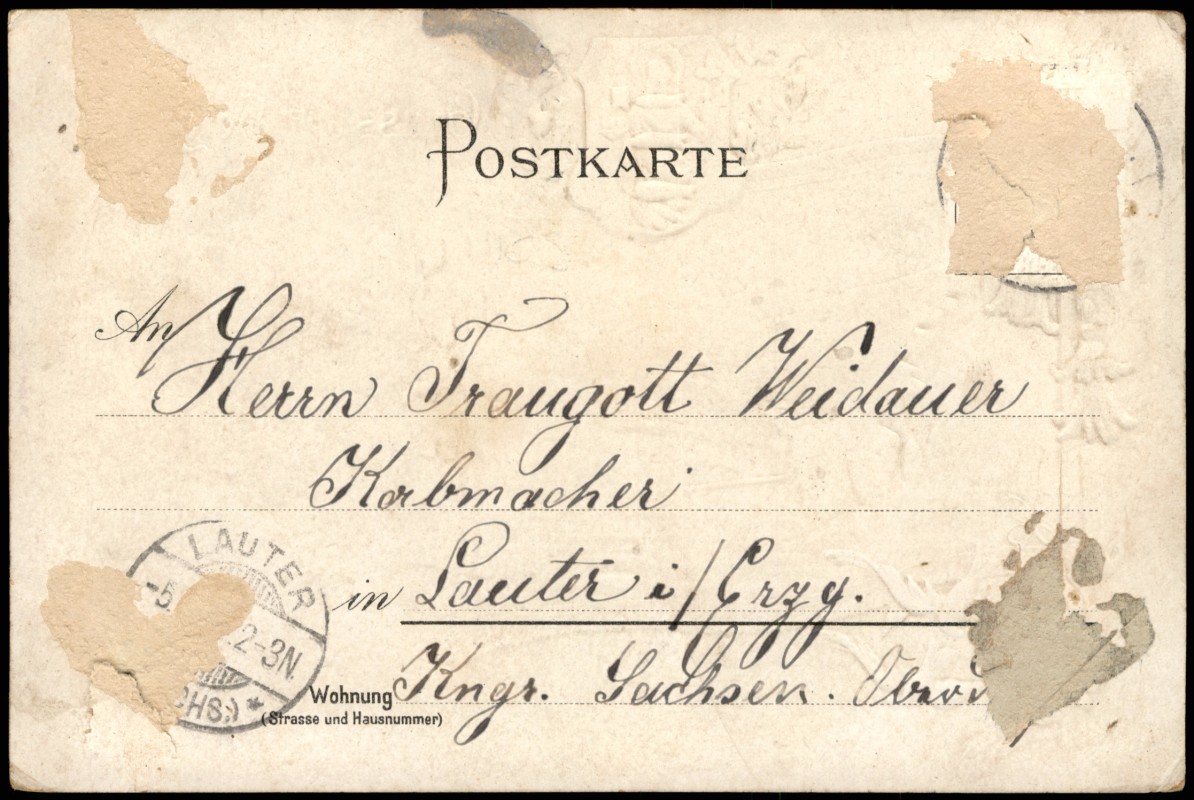 POSTKARTE
An
Herrn Traugott Weidauer
Korbmacher
in Lauter i/Erzg.
Wohnung Kngr. Sachsen.
(Strasse und Hausnummer)
LAUTER
-5
2-3N
CHS.) *